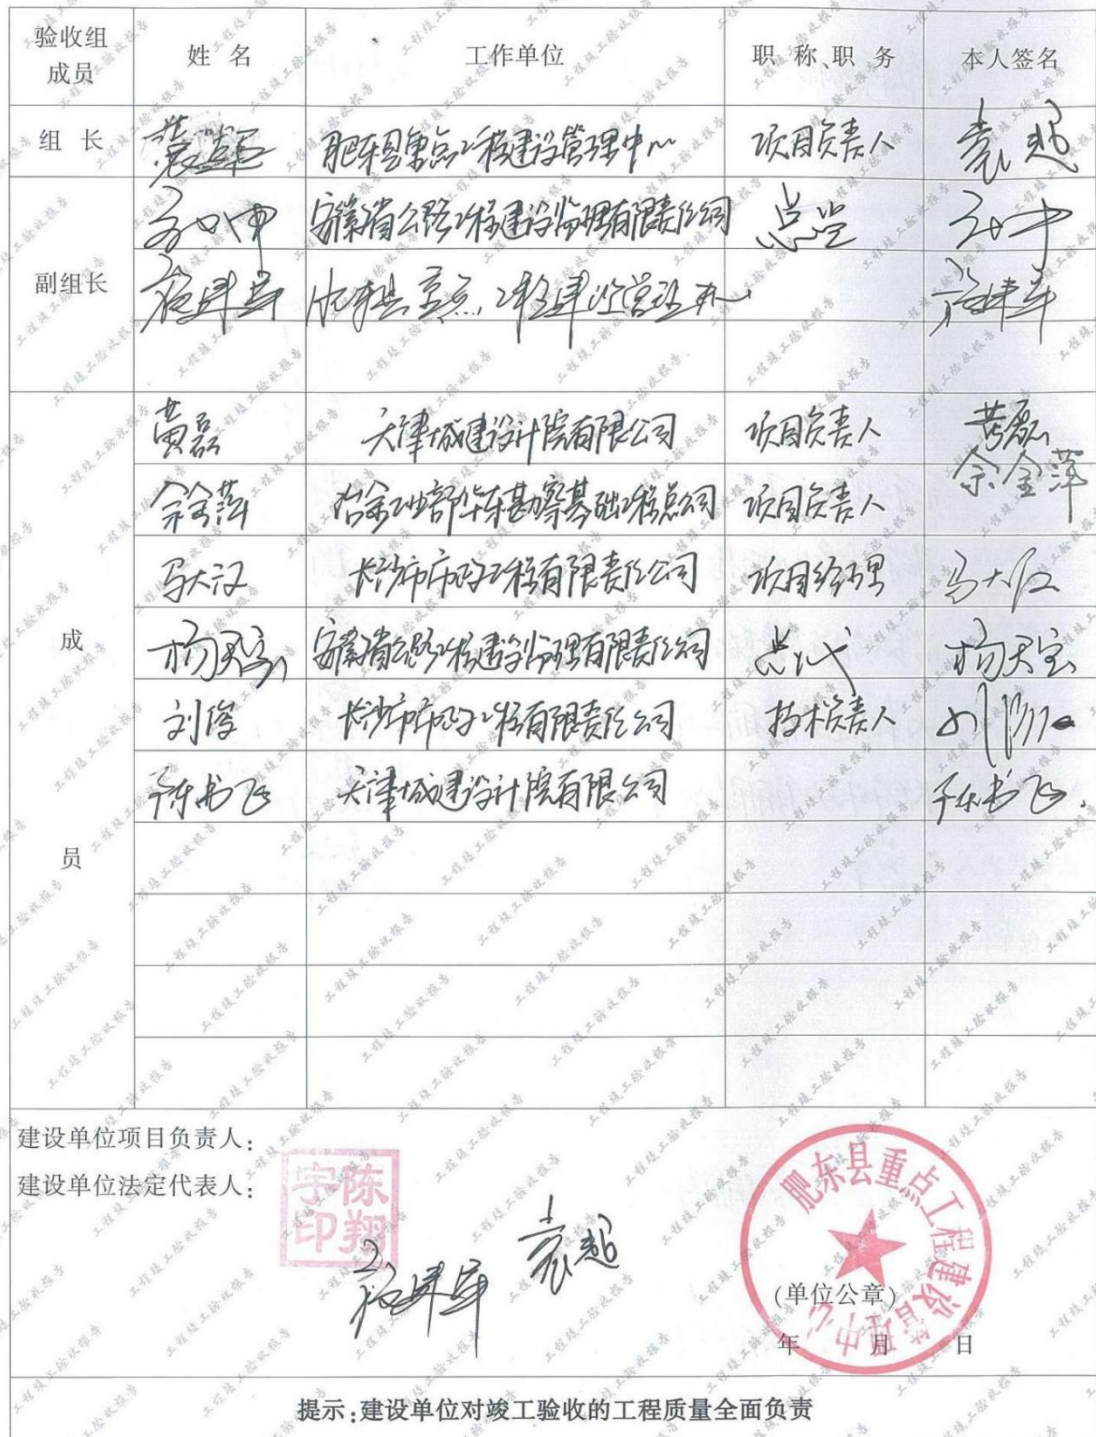 验收组成员 姓名 工作单位 职称、职务 本人签名
组长 肥东县重点工程建设管理中心 项目负责人 袁超
安徽省公路工程建设监理有限责任公司 总监
副组长 施建军 肥东县重点工程建设管理中心 施建军
黄磊 天津城建设计院有限公司 项目负责人 黄磊
余金萍 冶金工业部华东勘察基础工程总公司 项目负责人 余金萍
马大江 长沙市市政工程有限责任公司 项目经理 马大江
成 杨天宝 安徽省公路工程建设监理有限责任公司 总代 杨天宝
刘俊 长沙市市政工程有限责任公司 技术负责人 刘俊
陈书飞 天津城建设计院有限公司 陈书飞
员
建设单位项目负责人:
建设单位法定代表人:
陈翔宇印
施建军 袁超
肥东县重点工程建设管理中心
(单位公章)
年 月 日
提示:建设单位对竣工验收的工程质量全面负责
工程竣工验收报告